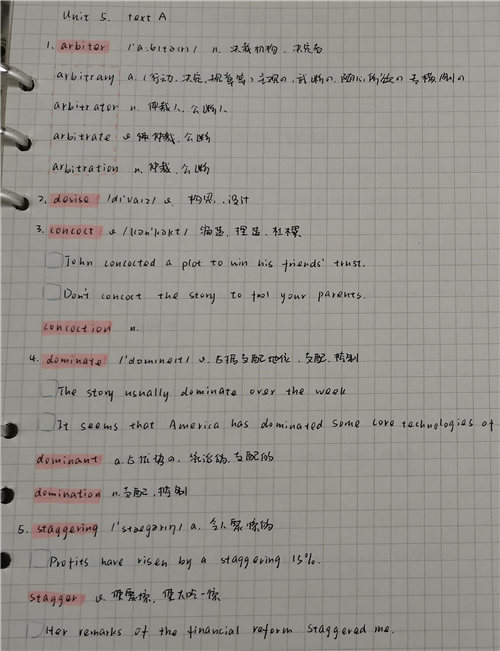 Unit 5. text A
1. arbiter /'a:bɪtə(r)/ n. 决裁机构、决定者
arbitrary a. (行动、决定、观率等) 主观の、武断の、随心所欲の 专横
arbitrator n. 仲裁人、公断人
arbitrate v. 仲裁、公断
arbitration n. 仲裁、公断
2. devise /dɪ'vaɪz/ v. 构思、设计
3. concoct v. /kən'kɒkt/ 编造、捏造、杜撰
John concocted a plot to win his friends' trust.
Don't concoct the story to fool your parents.
concoction n.
4. dominate /'dɒmineɪt/ v. 占据支配地位、支配、控制
The story usually dominate over the week
It seems that America has dominated some core technologies of
dominant a. 占优势の、统治的、支配的
domination n. 支配、控制
5. staggering /'stægərɪŋ/ a. 令人震惊的
Profits have risen by a staggering 15%.
stagger v. 使震惊、使大吃一惊
Her remarks of the financial reform staggered me.